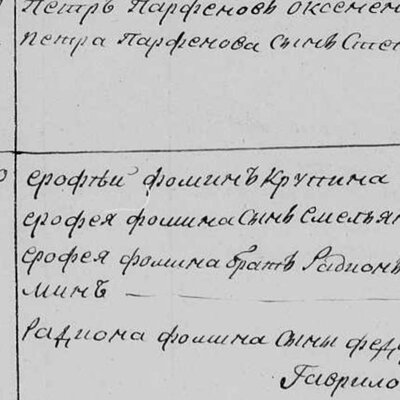 Петръ Парфеновъ Оксемен
Петра Парфенова сынъ Степ
Ерофѣй Фоминъ Крупина
Ерофея Фомина сынъ Емельян
Ерофея Фомина братъ Радионъ
минъ
Радиона Фомина сыны Федо
Гаврило